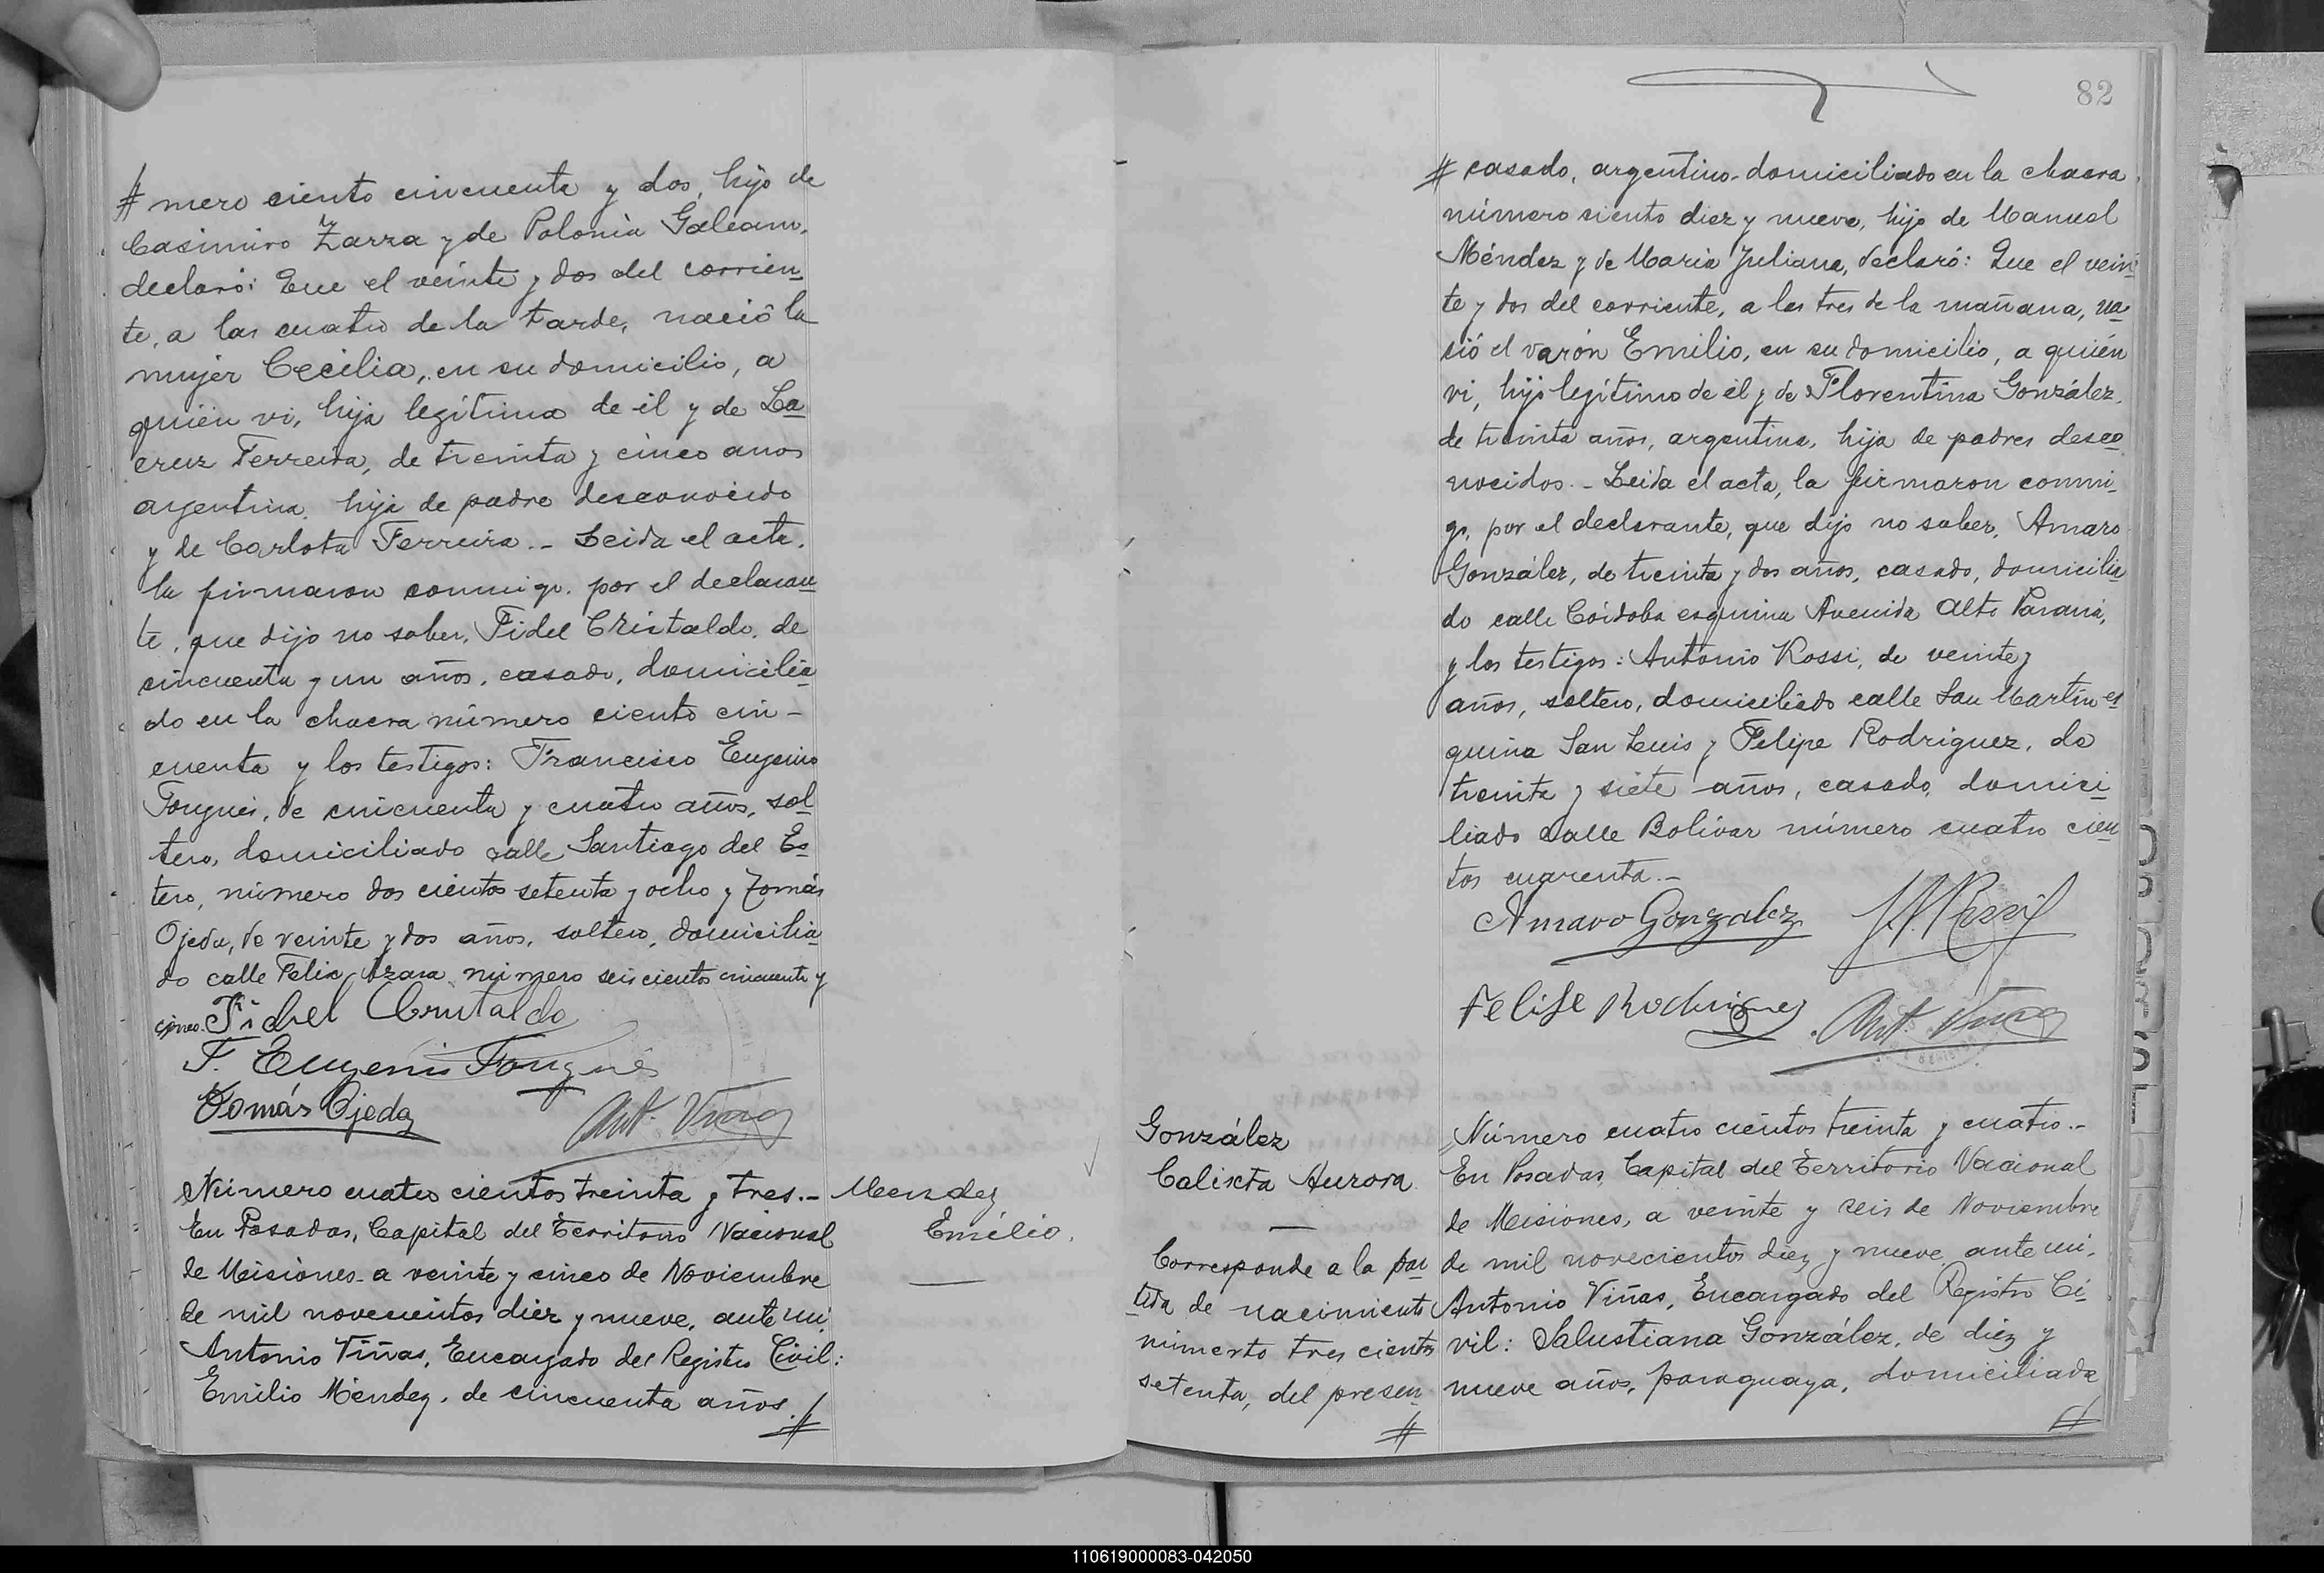 # mero ciento cincuenta y dos, hijo de
Casimiro Zarza y de Polonia Galeano,
declaró: Que el veinte y dos del corrien-
te, a las cuatro de la tarde, nació la
mujer Cecilia, en su domicilio, a
quién vi, hija legítima de él y de La
cruz Ferreira, de treinta y cinco años
argentina, hija de padre desconocido
y de Carlota Ferreira.- Leida el acta,
la firmaron conmigo, por el declaran
te, que dijo no saber, Fidel Cristaldo, de
cincuenta y un años, casado, domicilia
do en la chacra número ciento cin-
cuenta y los testigos: Francisco Eugenio
Fougués, de cincuenta y cuatro años, sol
tero, domiciliado calle Santiago del Es
tero, número dos cientos setenta y ocho y Tomás
Ojeda, de veinte y dos años, soltero, domicilia
do calle Felix Azara número seis cientos cincuenta y
cinco. Fidel Cristaldo
F. Eugenio Fougués
Tomás Ojeda
Ant. Viñas
Número cuatro cientos treinta y tres.-
En Posadas, Capital del Territorio Nacional
de Misiones a veinte y cinco de Noviembre
de mil novecientos diez y nueve, ante mi,
Antonio Viñas, Encargado del Registro Civil:
Emilio Méndez, de cincuenta años, #
Mendez
Emilio.
82
# casado, argentino domiciliado en la chacra
número siento diez y nueve, hijo de Manuel
Méndez y de Maria Juliana, declaró: Que el vein
te y dos del corriente, a las tres de la mañana, na
sió el varón Emilio, en su domicilio, a quién
vi, hijo legítimo de él y de Florentina González,
de treinta años, argentina, hija de padres desco
nocidos.- Leida el acta, la firmaron conmi-
go, por el declarante, que dijo no saber, Amaro
González, de treinta y dos años, casado, domicilia
do calle Córdoba esquina Avenida Alto Paraná,
y los testigos: Antonio Rossi, de veinte y
años, soltero, domiciliado calle San Martín es
quina San Luis y Felipe Rodriguez, de
treinta y siete años, casado, domici
liado calle Bolívar número cuatro cien
tos cuarenta.-
Amaro Gonzalez
Felipe Rodriguez
Ant. Viñas
González
Calixta Aurora
Corresponde a la par
tida de nacimiento
número tres cientos
setenta, del presen
#
Número cuatro cientos treinta y cuatro.-
En Posadas, Capital del Territorio Nacional
de Misiones, a veinte y seis de Noviembre
de mil novecientos diez y nueve, ante mi,
Antonio Viñas, Encargado del Registro Ci
vil: Salustiana González, de diez y
nueve años, paraguaya, domiciliada
#
110619000083-042050